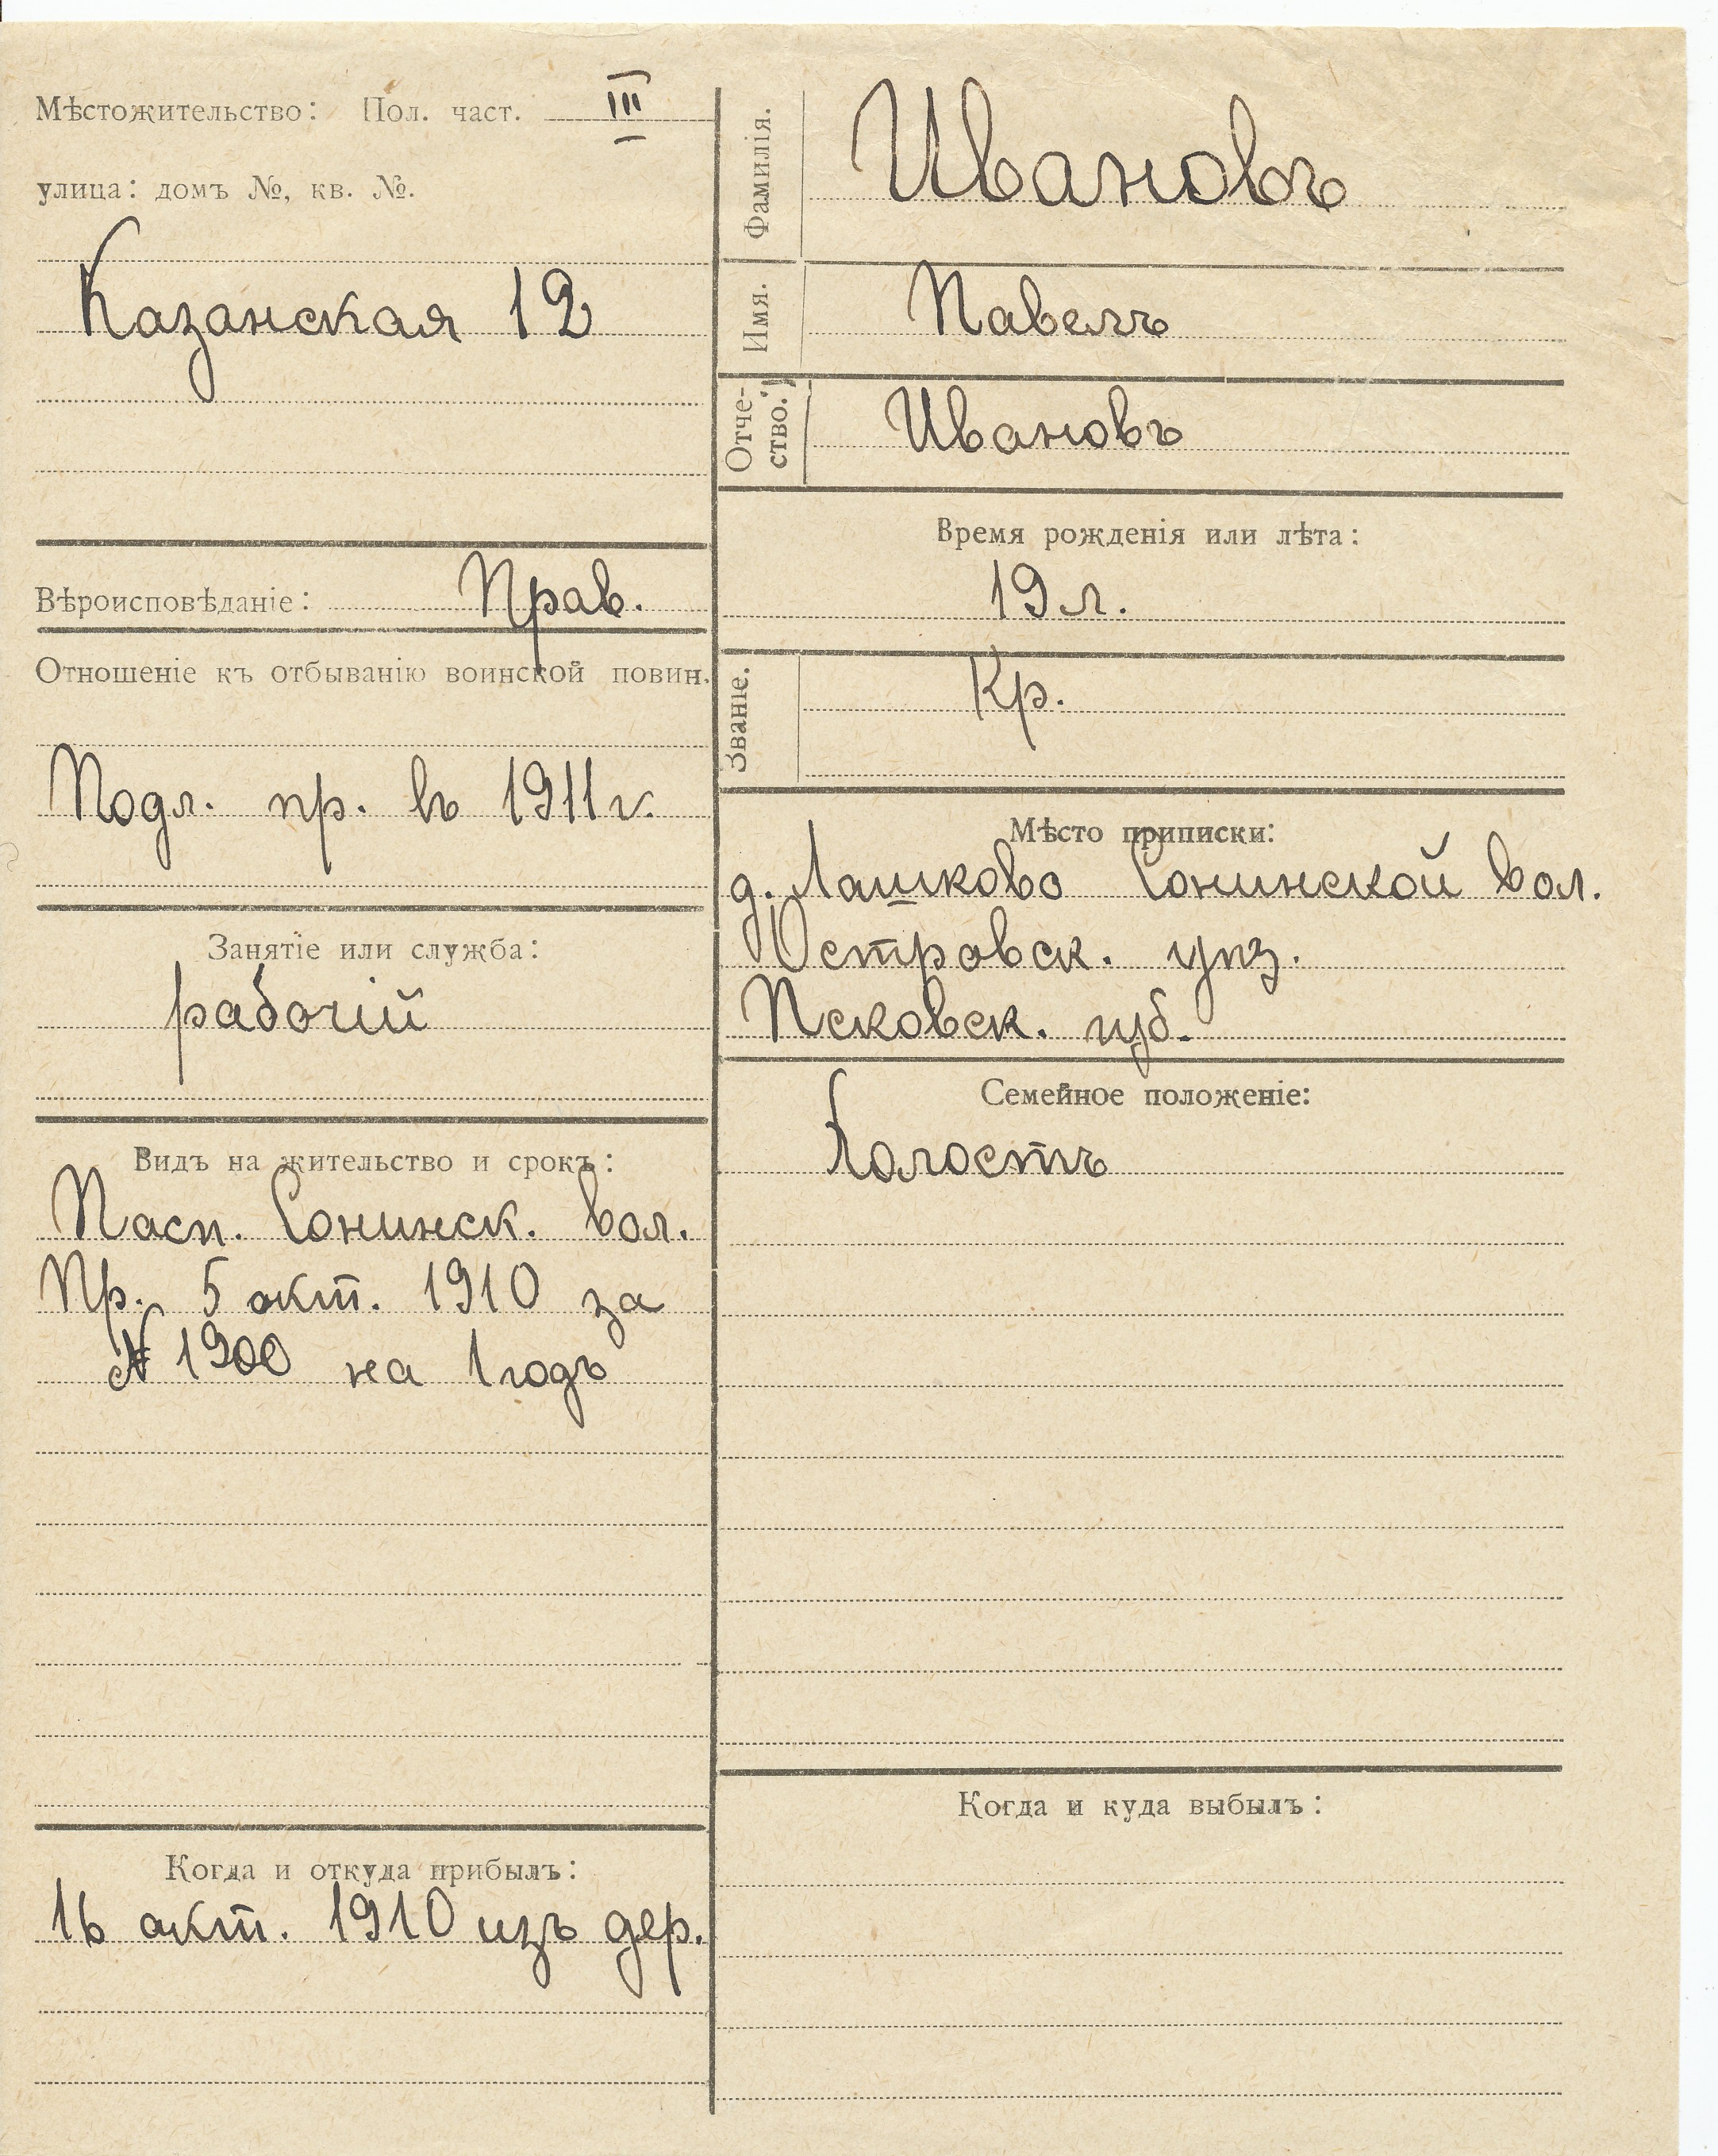 Мѣстожительство: Пол. част. III
улица: домъ №, кв. №.
Казанская 12
Вѣроисповѣданіе: Прав.
Отношеніе къ отбыванію воинской повин.
Подл. пр. въ 1911 г.
Занятіе или служба:
рабочій
Видъ на жительство и срокъ:
Пасп. Сонинск. вол.
Пр. 5 окт. 1910 за
№ 1900 на 1 годъ
Когда и откуда прибылъ:
16 окт. 1910 изъ дер.
Фамилія. Ивановъ
Имя. Павелъ
Отче-
ство. Ивановъ
Время рожденія или лѣта:
19 л.
Званіе. Кр.
Мѣсто приписки:
д. Лашково Сонинской вол.
Островск. уѣз.
Псковск. губ.
Семейное положеніе:
Холостъ
Когда и куда выбылъ: